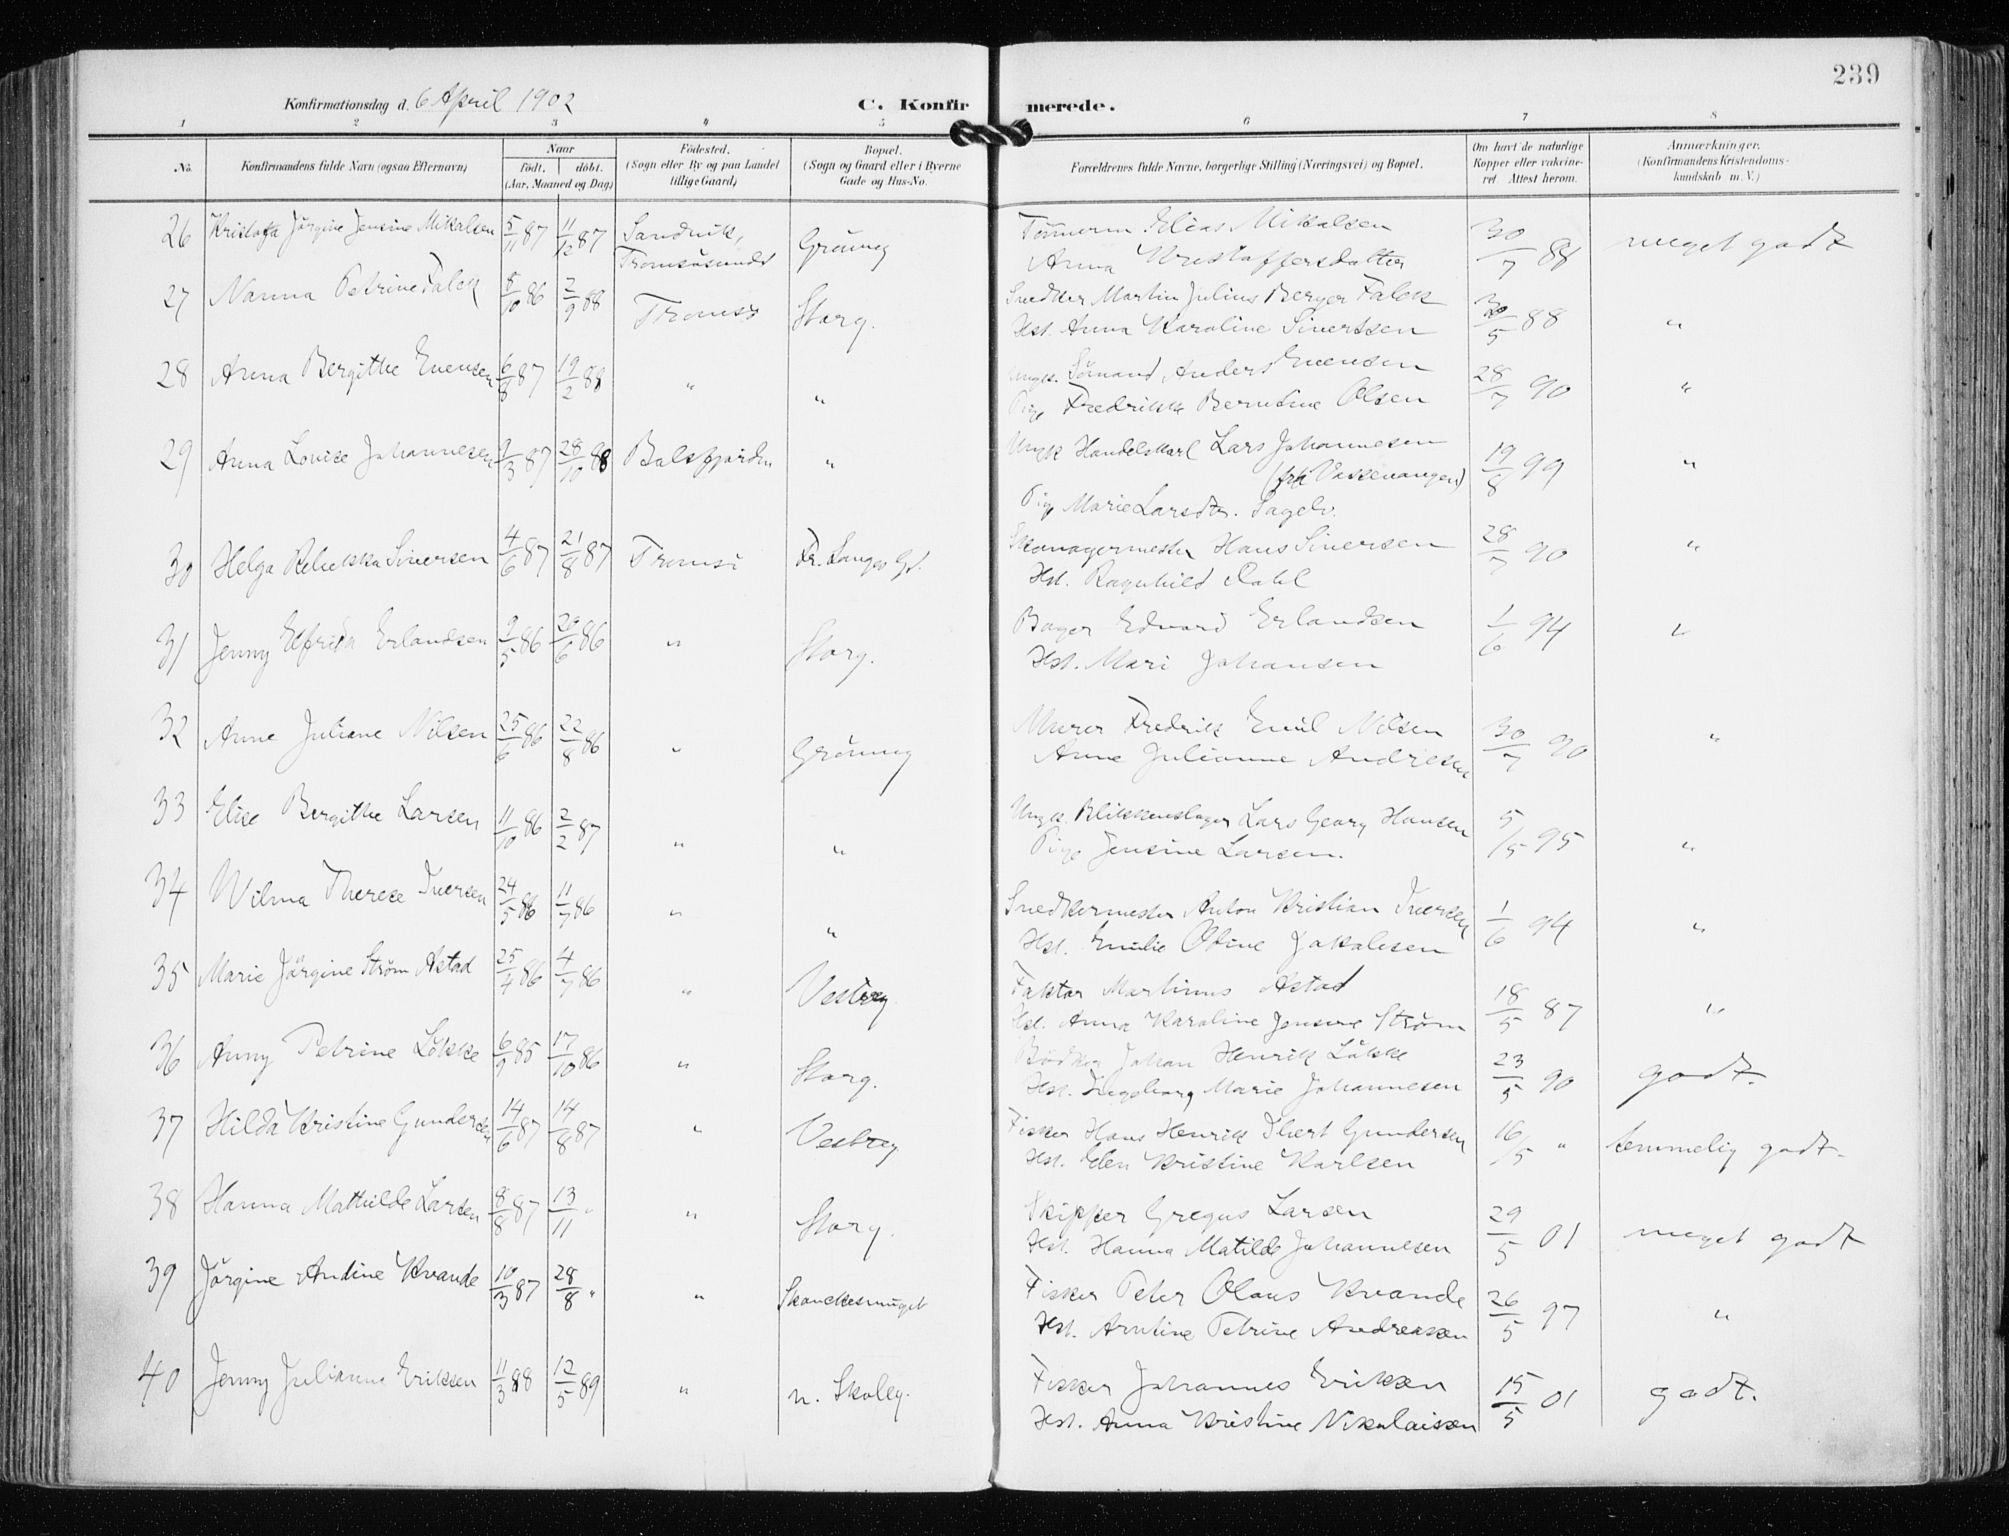 239
Konfirmationsdag d. 6 April 1902
C. Konfirmerede.
1 2 3 4 5 6 7 8
No. Konfirmandens fulde Navn (ogsaa Efternavn) Naar Født. døbt. (Aar, Maaned og Dag) Fødested. (Sogn eller By og paa Landet tillige Gaard) Bopæl. (Sogn og Gaard eller i Byerne Gade og Hus-No. Forældrenes fulde Navne, borgerlige Stilling (Næringsvei) og Bopæl. Om havt de naturlige Kopper eller vakcineret. Attest herom. Anmærkninger. (Konfirmandens Kristendomskundskab m. V.)
26 Kristofa Jörgine Jensine Mikalsen 5/11 87 11/12 87 Sandvik, Tromsøsundet Grönneg Tömmerm. Elias Mikalsen 30/7 88 meget godt
Anna Kristoffersdatter
27 Nanna Petrine Falck 8/10 86 2/9 88 Tromsö Storg. Snedker Martin Julius Berger Falck 30/5 88 "
Hst. Anna Karoline Sivertsen
28 Anna Bergithe Evensen 6/8 87 19/2 88 " " Ungk. Sömand Anders Evensen 28/7 90 "
Pige Fredrikke Berntine Olsen
29 Anna Lovise Johannesen 9/3 87 28/10 88 Balsfjorden " Ungk Handelskarl Lars Johannesen 19/8 99 "
(fra Vaskevangen)
Pige Marie Larsdtr. Sagelv.
30 Helga Rebekka Siversen 4/6 87 21/8 87 Tromsö Fr. Langes Gd. Skomagermester Hans Siversen 28/7 90 "
Hst. Ragnhild Dahl
31 Jenny Elfrida Erlandsen 9/5 86 20/6 86 " Storg. Bager Edvard Erlandsen 1/6 94 "
Hst. Mari Johansen
32 Anne Juliane Nilsen 25/6 86 22/8 86 " Grönneg Murer Fredrik Emil Nilsen 30/7 90 "
Anne Julianne Andresen
33 Elise Bergithe Larsen 11/10 86 2/2 87 " " Ungk. Blikkenslager Lars Georg Hansen 5/5 95 "
Pige Jensine Larsen.
34 Wilma Therese Iversen 24/5 86 11/7 86 " " Snedkermester Anton Kristian Iversen 1/6 94 "
Hst. Emilie Oline Jakobsen
35 Marie Jörgine Strøm Astad 25/4 86 4/7 86 " Vestreg. Faktor Martinus Astad 18/5 87 "
Hst. Anna Karoline Jensine Strøm
36 Anny Petrine Lökke 6/9 85 17/10 86 " Storg. Bödker Johan Henrik Lökke 23/5 90 godt.
Hst. Ingeborg Marie Johannesen
37 Hilda Kristine Gundersen 14/6 87 14/8 87 " Vestreg. Fisker Hans Henrik Ibert Gundersen 16/5 " temmelig godt.
Hst. Elen Kristine Karlsen
38 Hanna Mathilde Larsen 8/8 87 13/11 " " Storg. Skipper Gregus Larsen 29/5 01 meget godt
Hst. Hanna Matilde Johannesen
39 Jörgine Andine Kvande 10/3 87 28/8 " " Skanckesmuget Fisker Peter Olaus Kvande 26/5 97 "
Hst. Arntine Petrine Andreassen
40 Jenny Julianna Eriksen 11/3 88 12/5 89 " n. Skoleg. Fisker Johannes Eriksen 15/5 01 godt.
Hst. Anna Kristine Nikolaisen